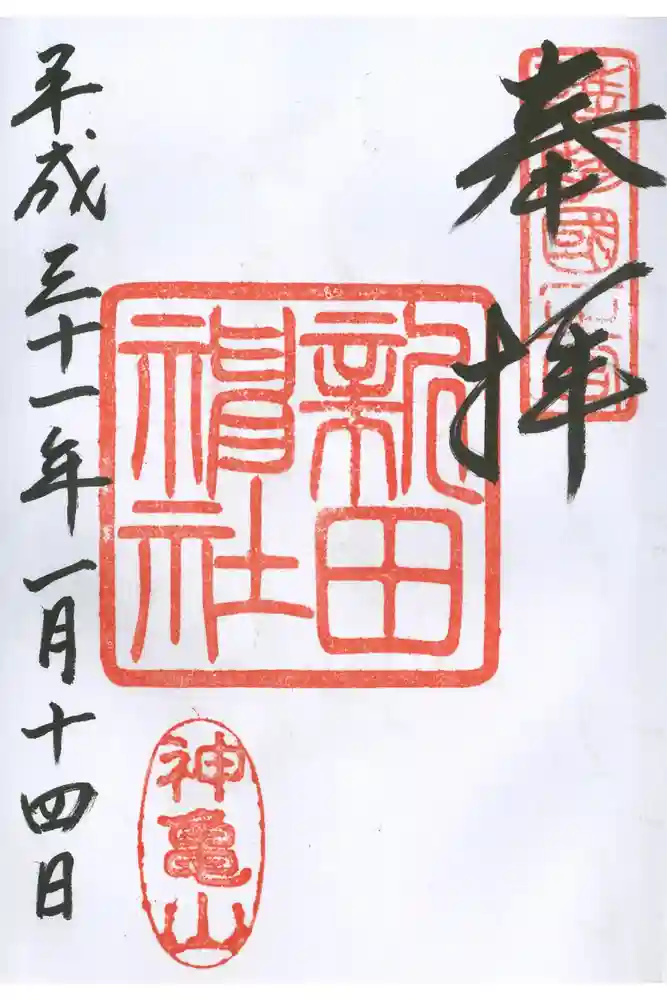 奉拝
薩摩國一宮
新田
神社
平成三十一年一月十四日
神亀山